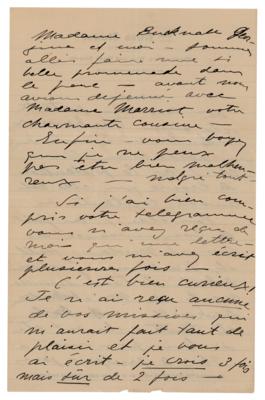 Madame Bucknall Geor-
gine et moi – sommes
allés faire une si
belle promenade dans
le parc – avant nous
avions déjeuner avec
Madame Marriot, votre
charmante cousine –
Enfin – vous voyez
que je ne peux
pas être bien malheu-
reux – malgré tout
Si j'ai bien com-
pris votre télégramme
vous n'avez reçu de
moi qu'une lettre
et vous m'avez écrit
plusieures fois !
C'est bien curieux !
Je n'ai reçu aucune
de vos missives qui
m'aurait fait tant de
plaisir et je vous
ai écrit – je crois 3 fois
mais sûr de 2 fois –